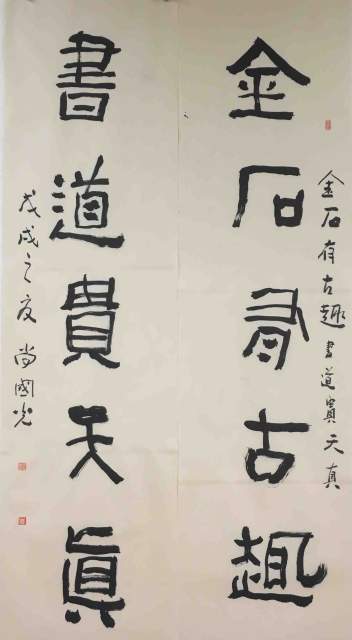 金石有古趣書道貴天真
金石有古趣
書道貴天真
戊戌之夏尚國光